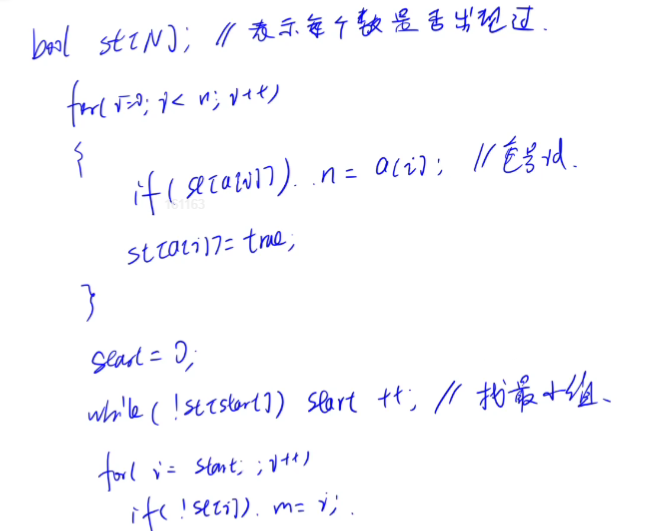 bool st[N]; // 表示每个数是否出现过.
for(i=0; i< n; i++)
{
if( st[a[i]]). n = a[i]; // 重号id.
st[a[i]]= true;
}
start = 0;
while( !st[start]) start ++; // 找最小值、
for( i= start; ; i++)
if( !st[i]). m= i;.